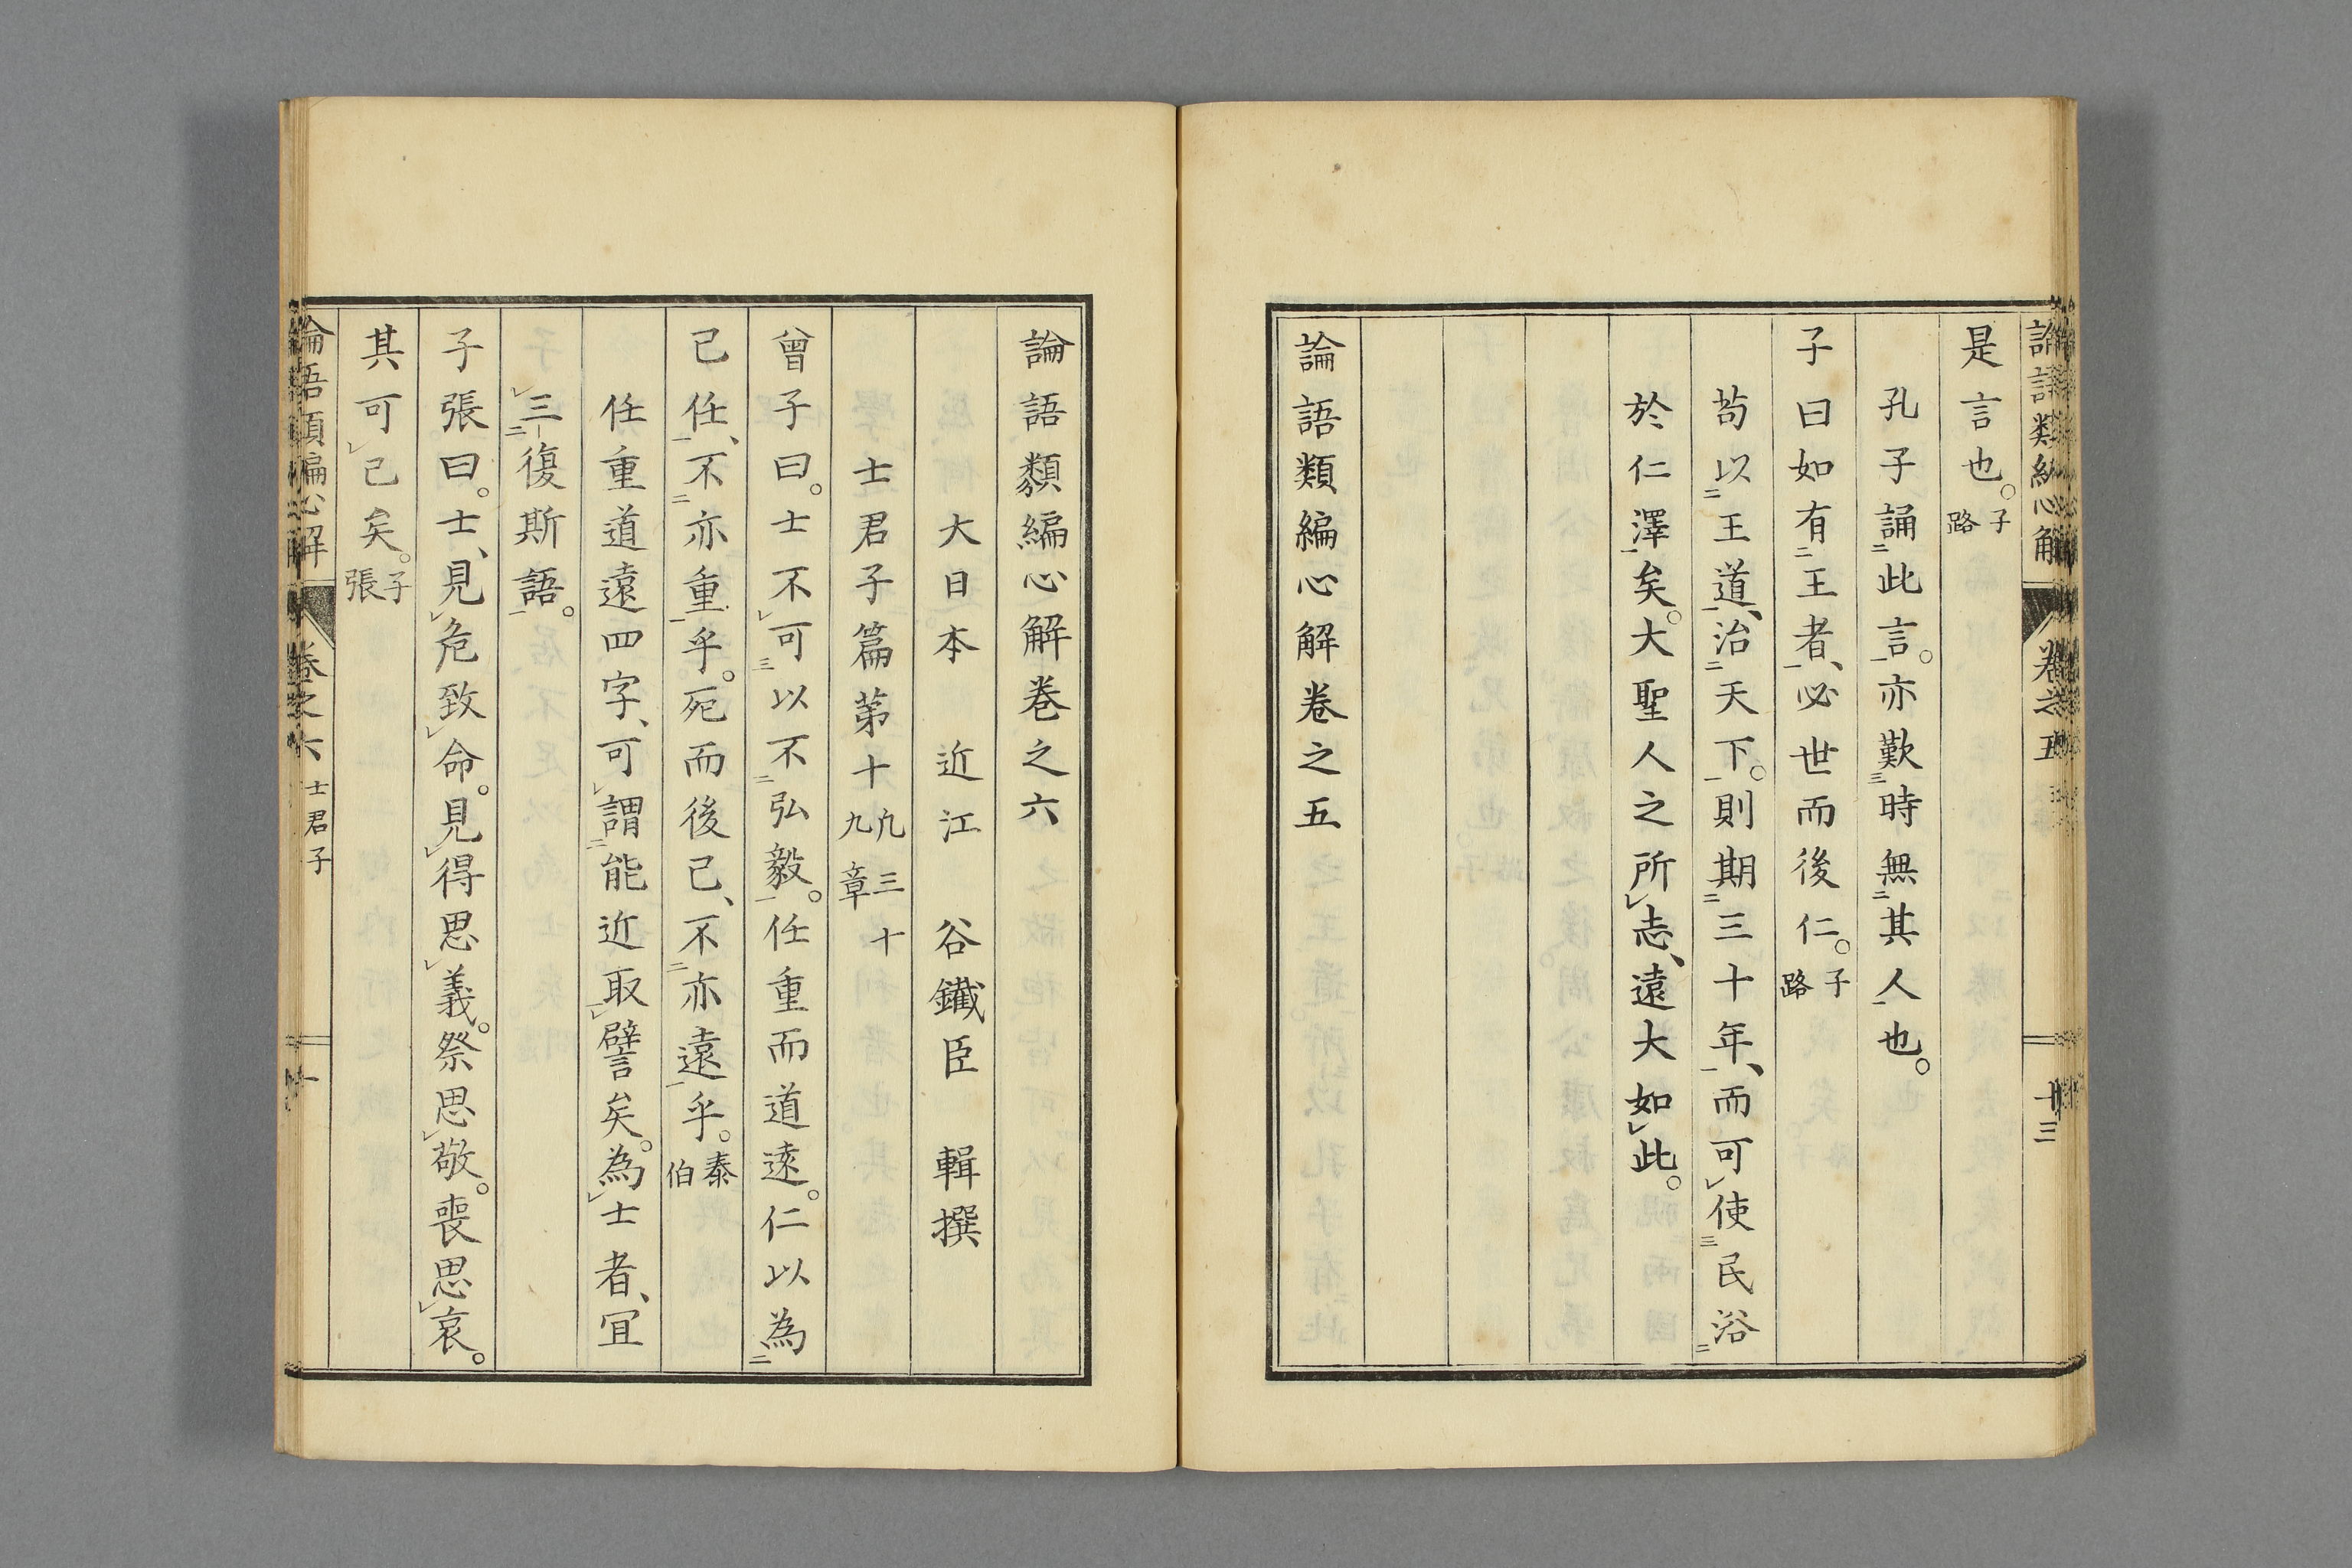 論語類編心解 卷之五 十三
是言也。子路
孔子誦二此言一。亦歎三時無二其人一也。
子曰如有二王者一、必世而後仁。子路
苟以二王道一、治二天下一。則期二三十年一、而可レ使三民浴二
於仁澤一矣。大聖人之所レ志、遠大如レ此。
論語類編心解卷之五
論語類編心解卷之六
大日本 近江 谷鐵臣 輯撰
士君子篇第十九 凢三十九章
曾子曰。士不レ可三以不二弘毅一。任重而道遠。仁以為二
己任一、不二亦重一乎。死而後已、不二亦遠一乎。泰伯
任重道遠四字、可レ謂二能近取一レ譬矣。為レ士者、宜
レ三二-復斯語一。
子張曰。士、見レ危致レ命。見レ得思レ義。祭思レ敬。喪思レ哀。
其可レ已矣。子張
論語類編心解 卷之六 士君子 一